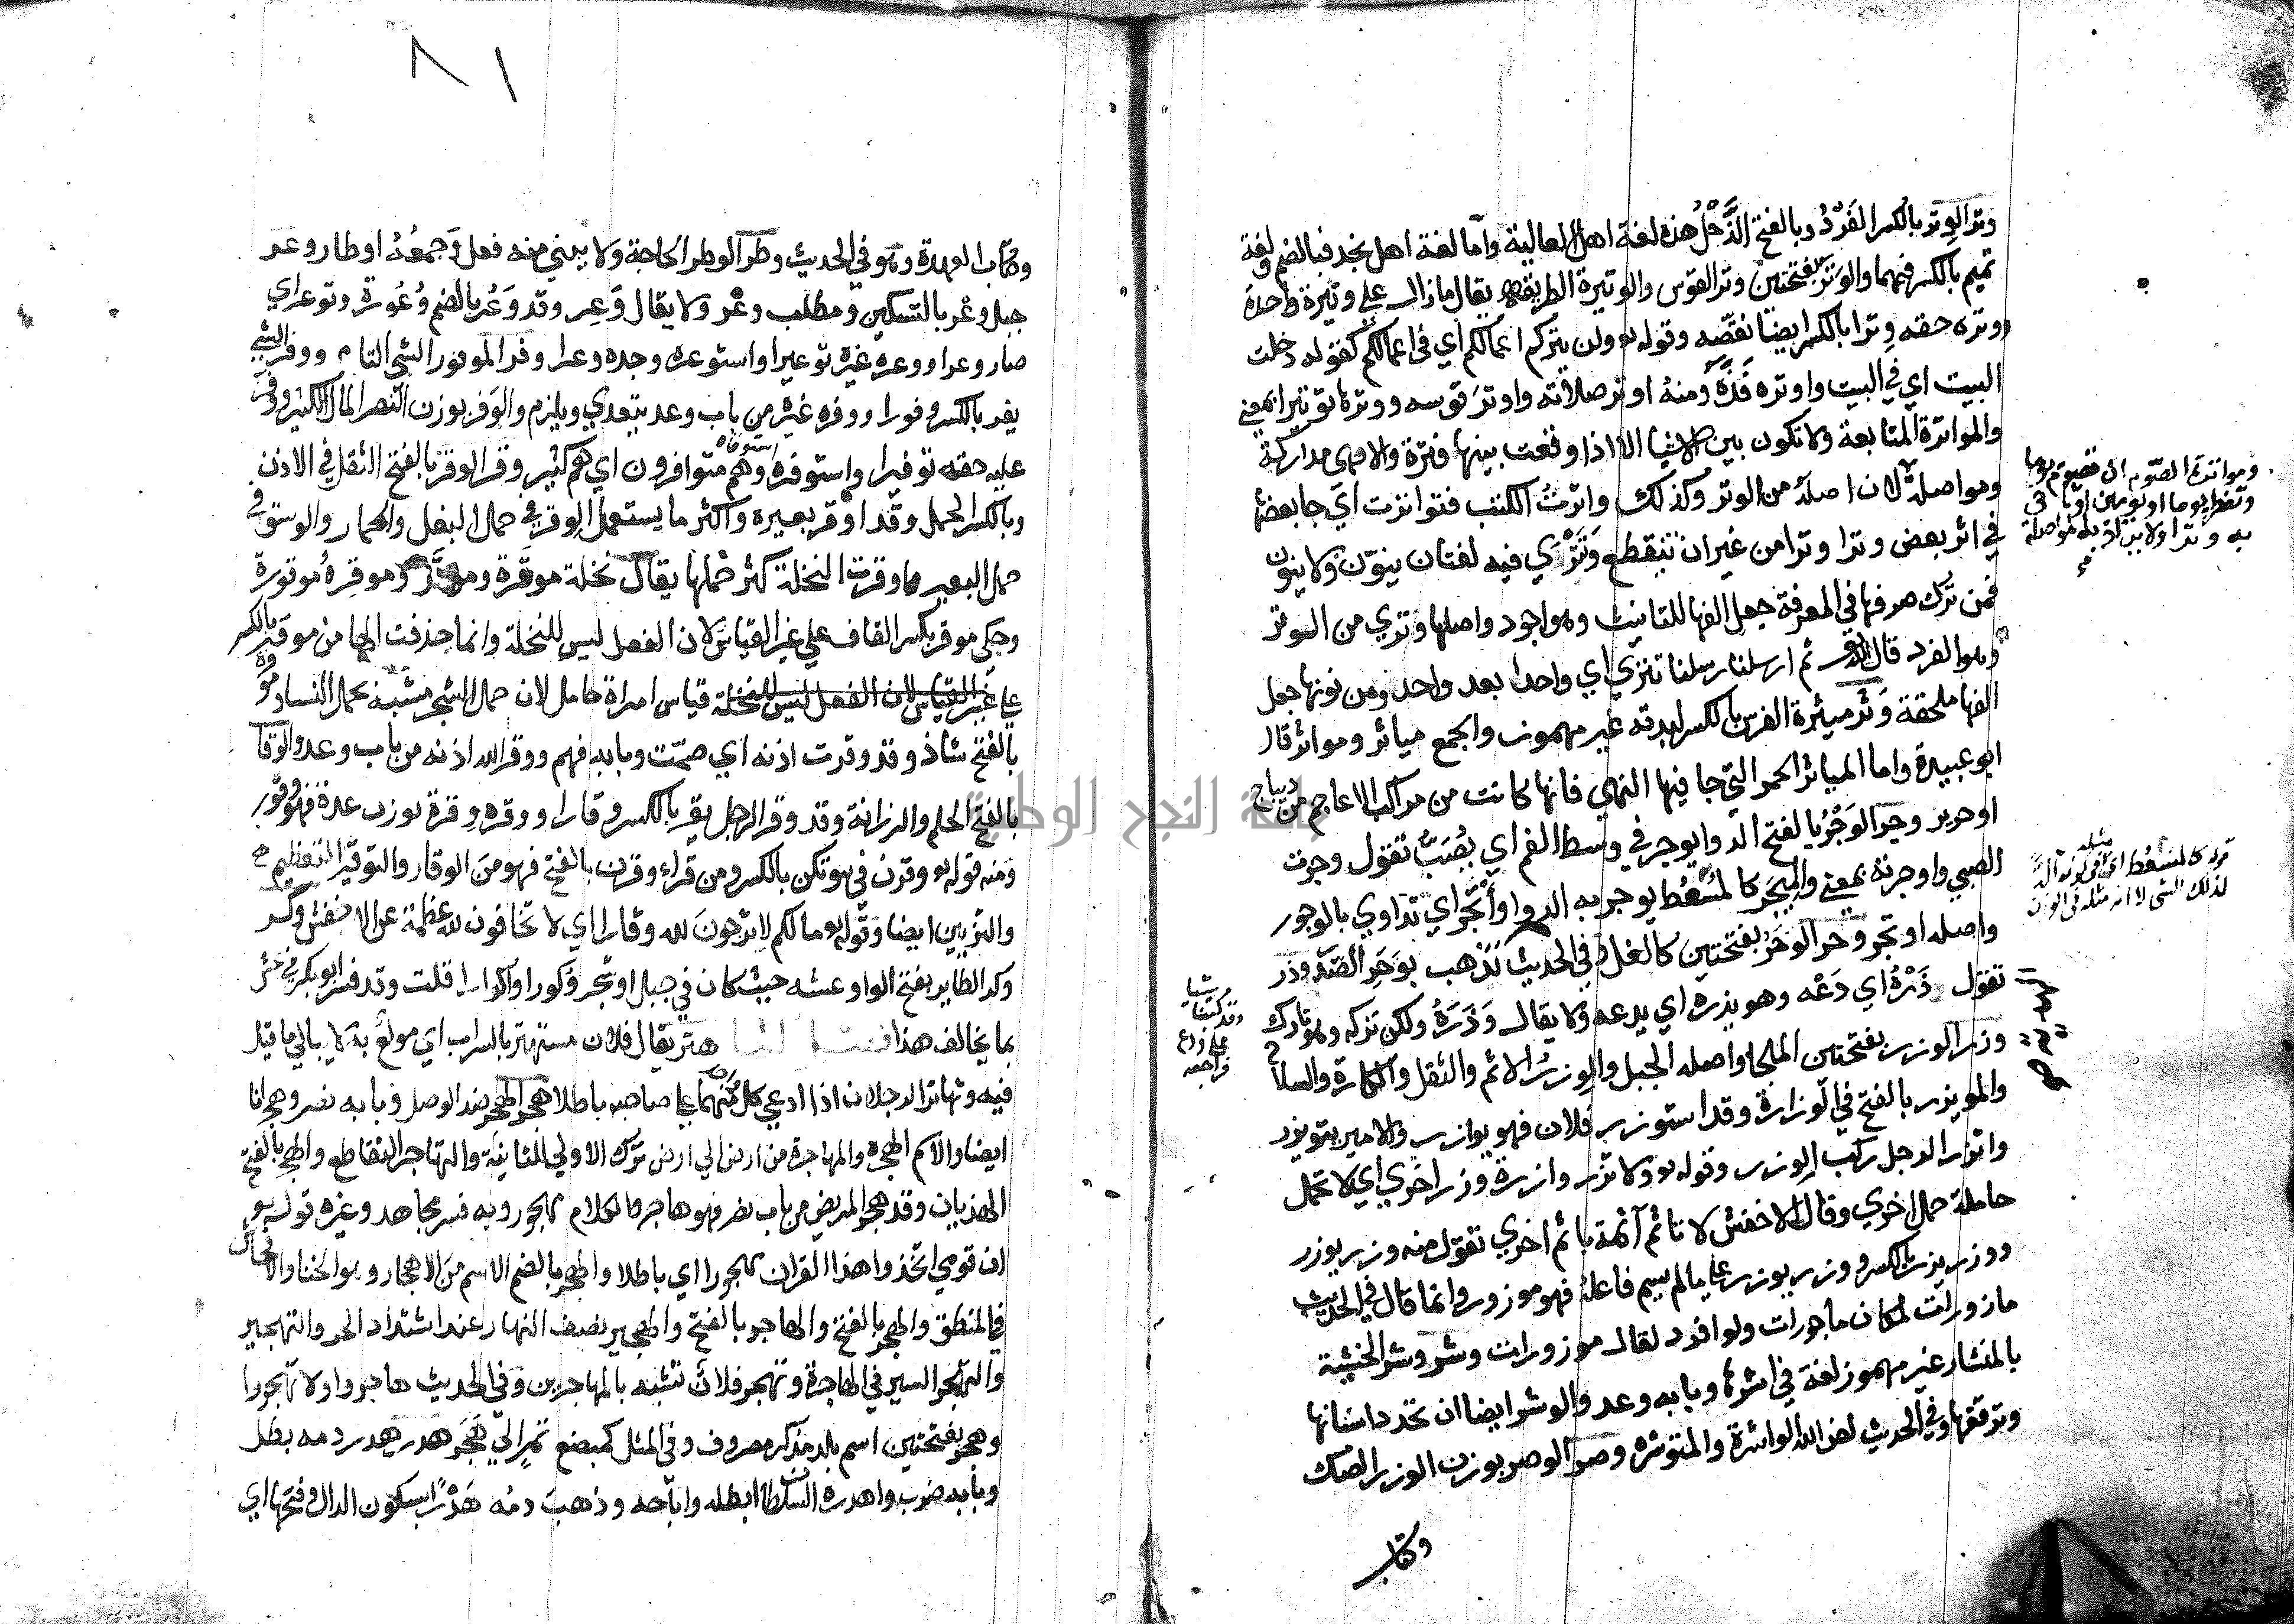 وتر الوِتر بالكسر الفَرْدُ وبالفتح الذَّحْلُ هذه لغة اهل العالية واما لغة اهل نجد فبالضم ولغة
تميم بالكسر فيهما والوَتَر بفتحتين وتر القوس والوتيرة الطريقة يقال ما زال علي وتيرة واحدة
ووتره حقه وِترا بالكسر ايضا نقصه وقوله تع ولن يتركم اعمالكم اي في اعمالكم كقوله دخلت
البيت اي في البيت واوتره فَذَّهُ ومنهُ اوتر صلاته واوتر قوسه ووترها توتيرا بمعني
والمواترة المتابعة ولا تكون بين الاشيا الا اذا وقعت بينها فترة والا فهي مداركة
ومواصلة لان اصله من الوتر وكذلك واترتُ الكتب فتواترت اي جا بعضها
في اثر بعض وترا وترا من غير ان تنقطع وتَتْري فيه لغتان ينوّن ولا ينون
فمن ترك صرفها في المعرفة جعل الفها للتانيث وهو اجود واصلها وتري من الوتر
وهو الفرد قال الله تع ثم ارسلنا رسلنا تتري اي واحدا بعد واحد ومن نونها جعل
الفها ملحقة وَثر ميثرة الفرس بالكسر لبدته غير مهموز والجمع مياثر ومواثر قال
ابو عبيدة واما المياثر الحمر التي جا فيها النهي فانها كانت من مراكب الاعاجم من ديباج
او حرير وجر الوَجْرُ بالفتح الدوا يوجر في وسط الفم اي يُصَبُّ تقول وجرت
الصبي واوجرته بمعني والميجَر كالمُسْعُط يوجر به الدوا واتَّجر اي تداوي بالوجور
واصله اوتجر وحر الوحَر بفتحتين كالغل وفي الحديث تذهب بوَحَر الصَدر وذر
تقول ذَرْهُ اي دَعْه وهو يذره اي يدعه ولا يقال وَذَرَهُ ولكن تركه وهو تارك
وزر الوزر بفتحتين الملجا واصله الجبل والوزرُ الاثم والثقل والكارة والسلاح
والموزير بالفتح في الوزارة وقد استوزر فلان فهو يوازر والامير يتوزر
واتزر الرجل ركب الوزر وقوله تع ولا تزر وازرة وزر اخري اي لا تحمل
حاملة حمل اخري وقال الاخفش لا تاثم آثمة باثم اخري تقول منه وزر يوزر
ووزر يزر بالكسر ووزر يوزر علي ما لم يسم فاعله فهو موزور وانما قال في الحديث
مازورات لمكان ماجورات ولو افرد لقال موزورات وشر وشر الخشبة
بالمنشار غير مهموز لغة في اشرها وبابه وعد والوشر ايضا ان تحدد اسنانها
وترققها وفي الحديث لعن الله الواشرة والمتوشره وصر الوصر بوزن الوزر الصك
وكتاب
ومواترة الصّوم ان تصوم يوما
وتفطر يوما او يومين وتاتي
به وترا ولا يراد به مواصلة
مثله
قوله كالمسعُط اي في كونه آلة
لذلك الشي لا انه مثله في الوزن
وقد كتبنا شيا
علي ودع
فراجعه
٨١
وكتاب العهدة وهو في الحديث وطر الوطر الحاجة ولا يبني منه فعل وَجمعُهُ اوطار وعر
جبل وعْر بالتسكين ومطلب وعْر ولا يقال وَعِر وقد وَعُر بالضم وُعُورة وتوعر اي
صار وعرا ووعره غيره توعيرا واستوعره وجده وعرا وفر الموفور الشي التام ووفر الشي
يفر بالكسر وفورا ووفره غيره من باب وعد يتعدي ويلزم والوَفر بوزن النصر المال الكثير ووفر
عليه حقه توفيرا واستوفره استوفاه وهم متوافرون اي هم كثير وقر الوقر بالفتح الثقل في الاذن
وبالكسر الحمل وقد اوقر بعيره واكثر ما يستعمل الوقر في حمل البغل والحمار والوسق في
حمل البعير واوقرت النخلة كثر حملها يقال نخلة موقَرة وموقَر وموقِرة موقورة
وحكي موقر بكسر القاف علي غير القياس لان الفعل ليس للنخلة وانما حذفت الها من موقر بالكسر
علي غير القياس لان الفعل ليس للنخلة قياس امراة حامل لان حمل الشجر مشبه بحمل النسا وموقر
بالفتح شاذ وقد وقرت اذنه اي صمّت وبابه فهم ووقر الله اذنه من باب وعد والوقار
بالفتح الحلم والرزانة وقد وقر الرجل يقر بالكسر وقارا ووقره وِقرة بوزن عدة فهو وقور
ومنه قوله تع وقرن في بيوتكن بالكسر ومن قراء وقرن بالفتح فهو من الوقار والتوقير التعظيم
والترزين ايضا وقوله تع ما لكم لا ترجونَ لله وقارا اي لا تخافون لله عظمة عن الاخفش وكر
وكر الطاير بفتح الواو عشه حيث كان في جبل او شجر وُكورا واوكارا قلت وقد فسر ابو بكر في عشر
بما يخالف هذا هتر يقال فلان مستهتر بالسراب اي مولَع به لا يبالي ما قيل
فيه وتهاتر الرجلان اذا ادعي كل منهما علي صاحبه باطلا هجر الهجر ضد الوصل وبابه نصر وهجرانا
ايضا والاسم الهجرة والمهاجرة من ارض الي ارض ترك الاولي للثانية والتهاجر التقاطع والهجر بالفتح
الهذيان وقد هجر المريض من باب نصر فهو هاجر والكلام مهجور وبه فسر مجاهد وغيره قوله تع
ان قومي اتخذوا هذا القران مهجورا اي باطلا والهجر بالضم الاسم من الاهجار وهو الخنا والافحاش
في المنطق والهجر بالفتح والهاجر بالفتح والهجير نصف النهار عند اشتداد الحر والتهجير
والتهجر السير في الهاجرة وتهجر فلان تشبه بالمهاجرين وفي الحديث هاجروا ولا تهجروا
وهجر بفتحتين اسم بلد مذكر مصروف وفي المثل كمبضع تمرٍ الي هَجَر هدر هدر دمه بطل
وبابه ضرب واهدره السلطان ابطله واباحه وذهبَ دمُه هَدْرًا بسكون الدال وفتحها اي